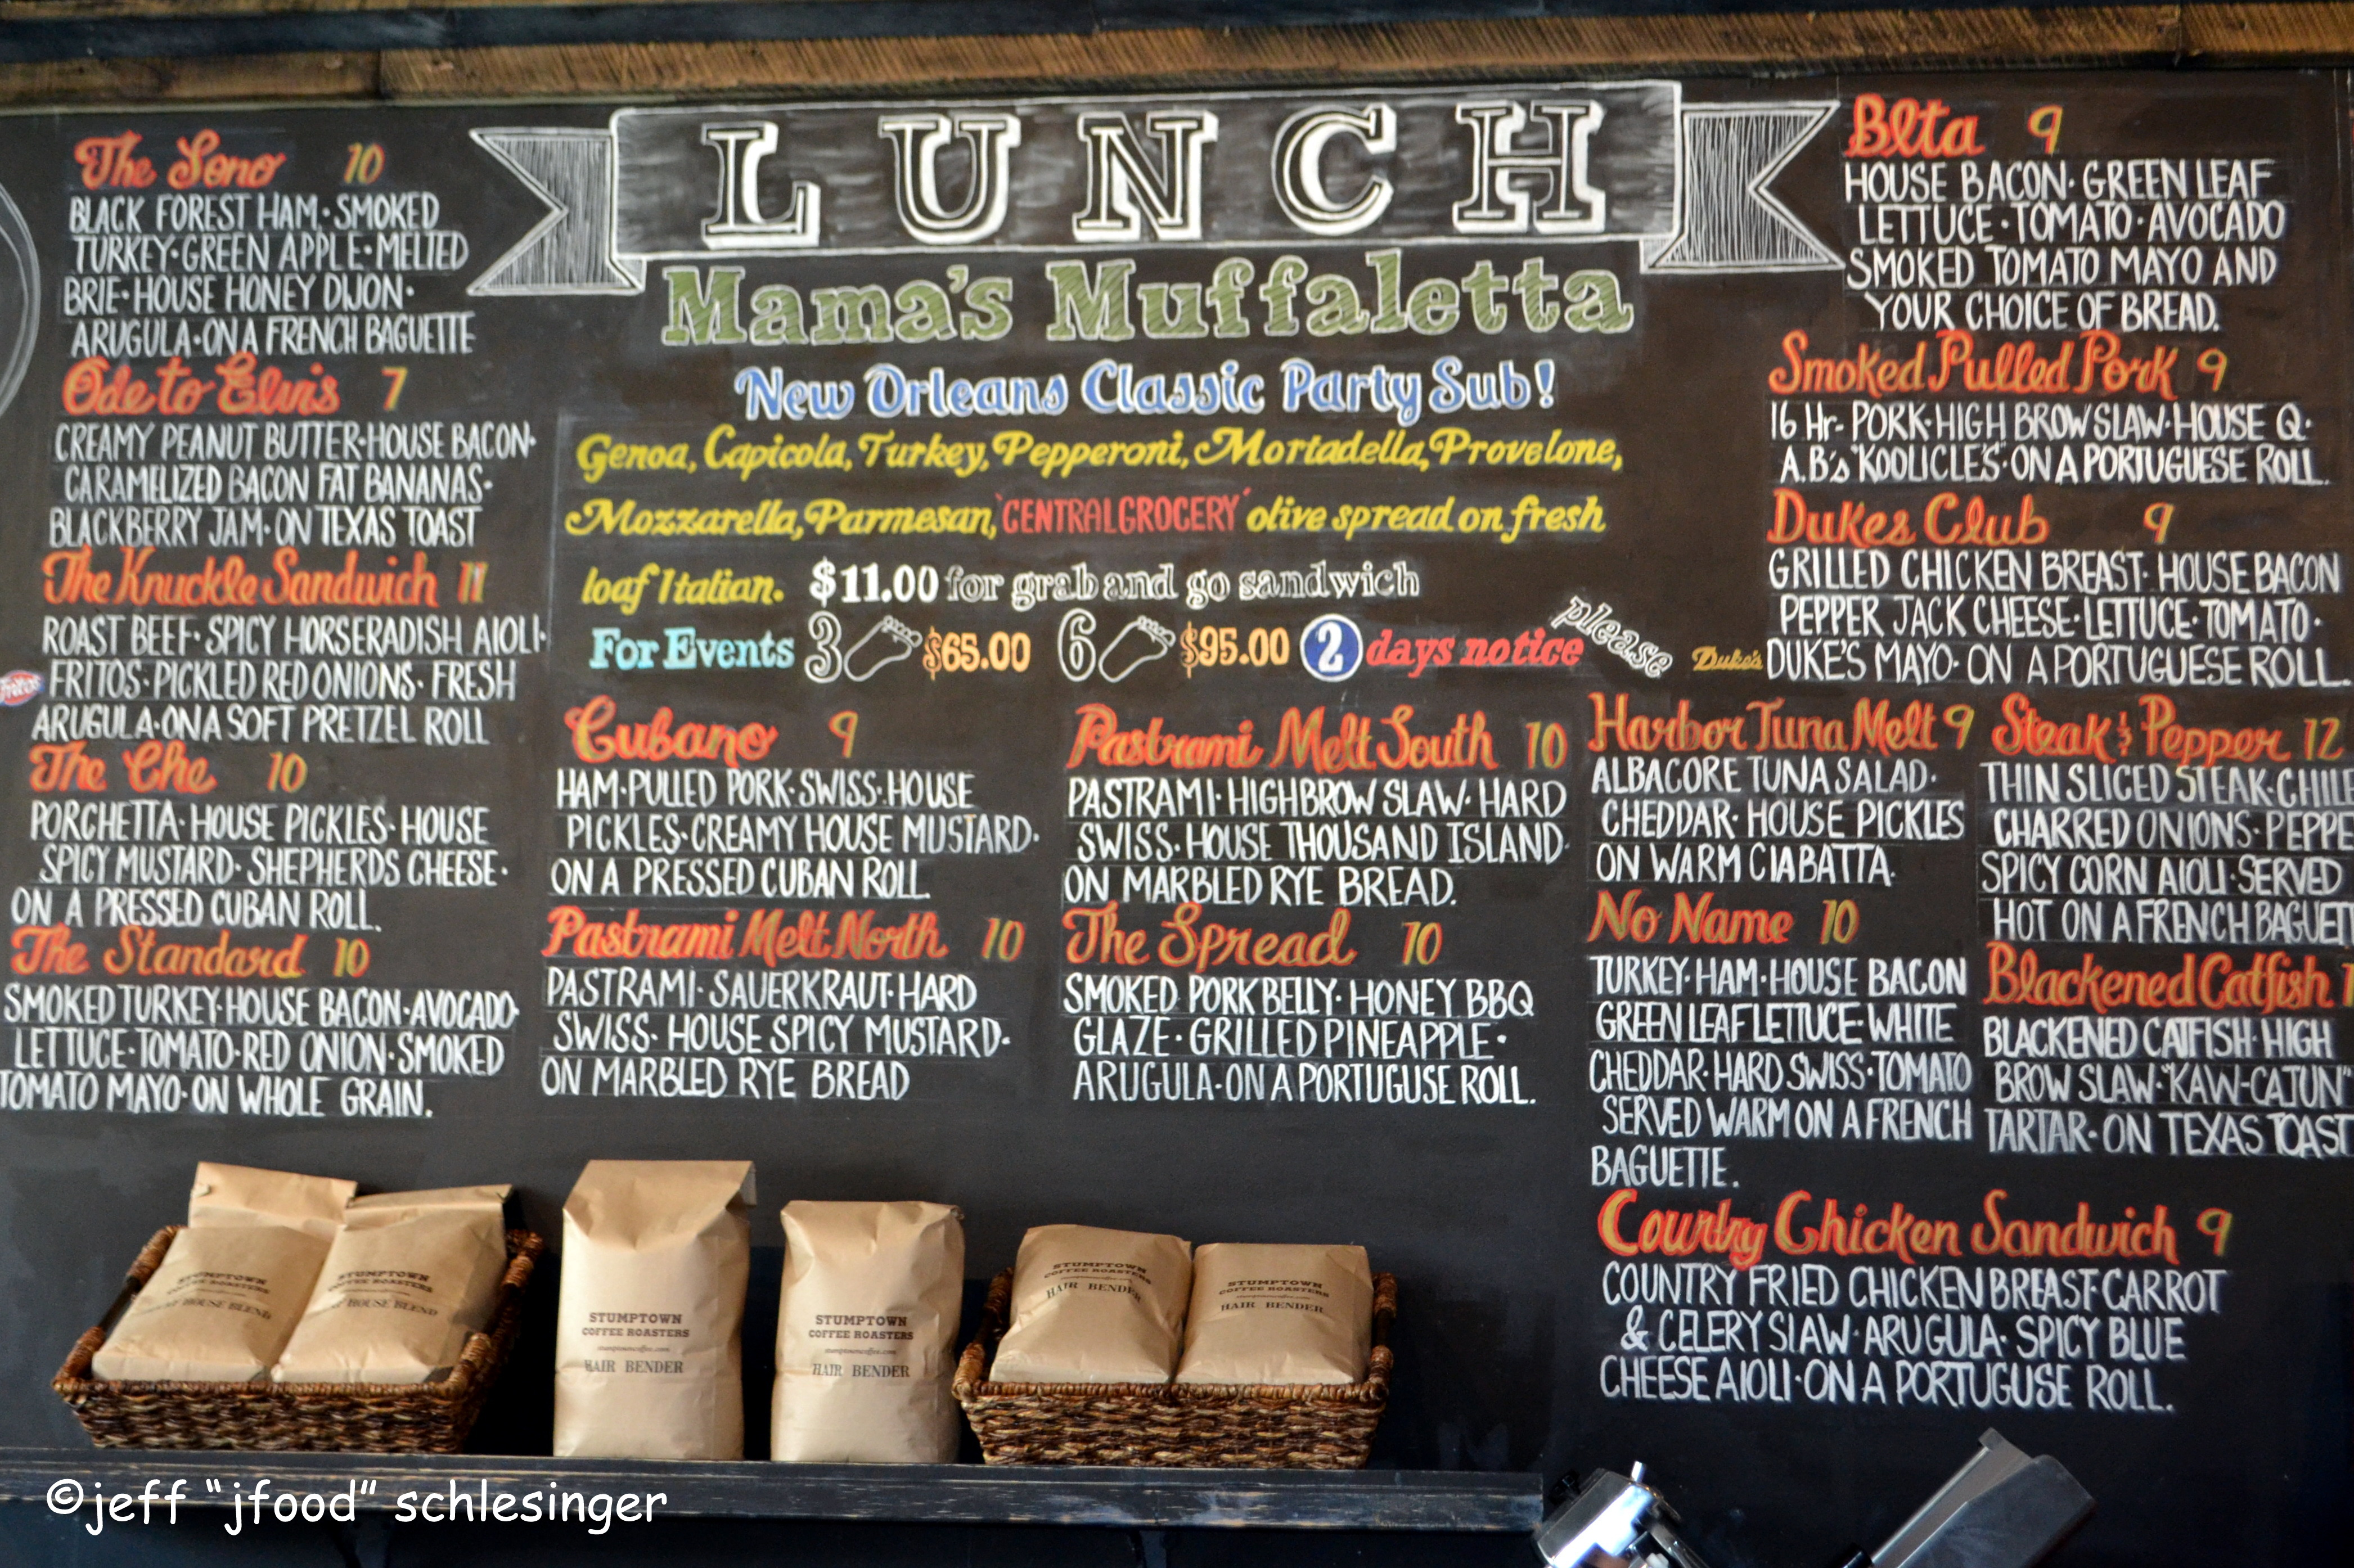 LUNCH
Mama's Muffaletta
New Orleans Classic Party Sub!
Genoa, Capicola, Turkey, Pepperoni, Mortadella, Provelone,
Mozzarella, Parmesan, 'CENTRAL GROCERY' olive spread on fresh
loaf Italian. $11.00 for grab and go sandwich
For Events 3 $65.00 6 $95.00 2 days notice please
The Sono 10
BLACK FOREST HAM · SMOKED
TURKEY · GREEN APPLE · MELTED
BRIE · HOUSE HONEY DIJON ·
ARUGULA · ON A FRENCH BAGUETTE
Ode to Elvis 7
CREAMY PEANUT BUTTER · HOUSE BACON ·
CARAMELIZED BACON FAT BANANAS ·
BLACKBERRY JAM · ON TEXAS TOAST
The Knuckle Sandwich 11
ROAST BEEF · SPICY HORSERADISH AIOLI ·
Fritos FRITOS · PICKLED RED ONIONS · FRESH
ARUGULA · ON A SOFT PRETZEL ROLL
The Che 10
PORCHETTA · HOUSE PICKLES · HOUSE
SPICY MUSTARD · SHEPHERDS CHEESE ·
ON A PRESSED CUBAN ROLL.
The Standard 10
SMOKED TURKEY · HOUSE BACON · AVOCADO ·
LETTUCE · TOMATO · RED ONION · SMOKED
TOMATO MAYO · ON WHOLE GRAIN.
Cubano 9
HAM · PULLED PORK · SWISS · HOUSE
PICKLES · CREAMY HOUSE MUSTARD ·
ON A PRESSED CUBAN ROLL.
Pastrami Melt North 10
PASTRAMI · SAUERKRAUT · HARD
SWISS · HOUSE SPICY MUSTARD ·
ON MARBLED RYE BREAD
Pastrami Melt South 10
PASTRAMI · HIGHBROW SLAW · HARD
SWISS · HOUSE THOUSAND ISLAND ·
ON MARBLED RYE BREAD.
The Spread 10
SMOKED PORK BELLY · HONEY BBQ
GLAZE · GRILLED PINEAPPLE ·
ARUGULA · ON A PORTUGUSE ROLL.
Blta 9
HOUSE BACON · GREEN LEAF
LETTUCE · TOMATO · AVOCADO
SMOKED TOMATO MAYO AND
YOUR CHOICE OF BREAD.
Smoked Pulled Pork 9
16 Hr- PORK · HIGH BROW SLAW · HOUSE Q ·
A.B's "KOOLICLE'S" · ON A PORTUGUESE ROLL.
Dukes Club 9
GRILLED CHICKEN BREAST · HOUSE BACON
PEPPER JACK CHEESE · LETTUCE · TOMATO ·
Duke's DUKE'S MAYO · ON A PORTUGUESE ROLL.
Harbor Tuna Melt 9
ALBACORE TUNA SALAD ·
CHEDDAR · HOUSE PICKLES
ON WARM CIABATTA.
No Name 10
TURKEY · HAM · HOUSE BACON
GREEN LEAF LETTUCE · WHITE
CHEDDAR · HARD SWISS · TOMATO
SERVED WARM ON A FRENCH
BAGUETTE.
Steak & Pepper 12
THIN SLICED STEAK · CHILE
CHARRED ONIONS · PEPPE
SPICY CORN AIOLI · SERVED
HOT ON A FRENCH BAGUETT
Blackened Catfish 1
BLACKENED CATFISH · HIGH
BROW SLAW · "KAW-CAJUN"
TARTAR · ON TEXAS TOAST
Country Chicken Sandwich 9
COUNTRY FRIED CHICKEN BREAST · CARROT
& CELERY SLAW · ARUGULA · SPICY BLUE
CHEESE AIOLI · ON A PORTUGUSE ROLL.
STUMPTOWN
COFFEE ROASTERS
HOUSE BLEND
STUMPTOWN
COFFEE ROASTERS
HOUSE BLEND
STUMPTOWN
COFFEE ROASTERS
stumptowncoffee.com
HAIR BENDER
STUMPTOWN
COFFEE ROASTERS
stumptowncoffee.com
HAIR BENDER
STUMPTOWN
COFFEE ROASTERS
HAIR BENDER
STUMPTOWN
COFFEE ROASTERS
HAIR BENDER
©jeff "jfood" schlesinger